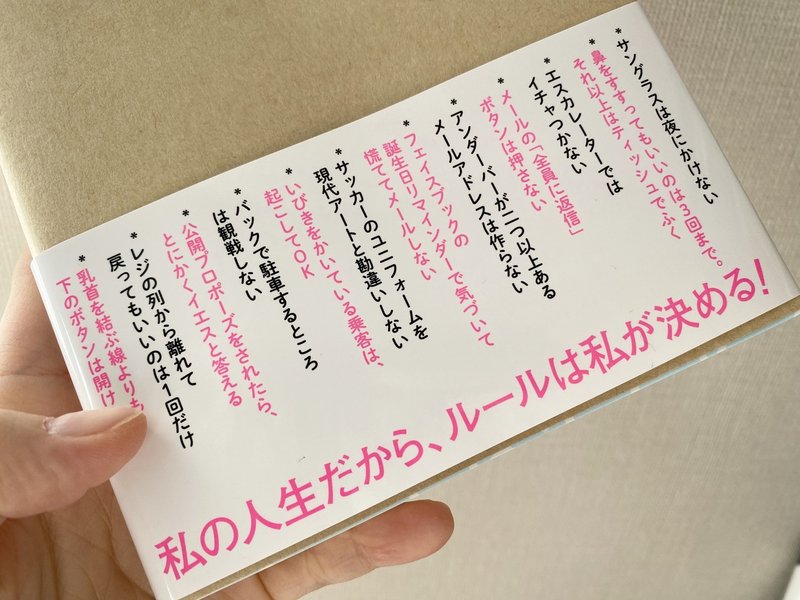 *サングラスは夜にかけない
*鼻をすすってもいいのは3回まで。
それ以上はティッシュでふく
*エスカレーターでは
イチャつかない
*メールの「全員に返信」
ボタンは押さない
*アンダーバーが二つ以上ある
メールアドレスは作らない
*フェイスブックの
誕生日リマインダーで気づいて
慌ててメールしない
*サッカーのユニフォームを
現代アートと勘違いしない
*いびきをかいている乗客は、
起こしてOK
*バックで駐車するところ
は観戦しない
*公開プロポーズをされたら、
とにかくイエスと答える
*レジの列から離れて
戻ってもいいのは1回だけ
*乳首を結ぶ線よりも
下のボタンは開け
私の人生だから、ルールは私が決める!